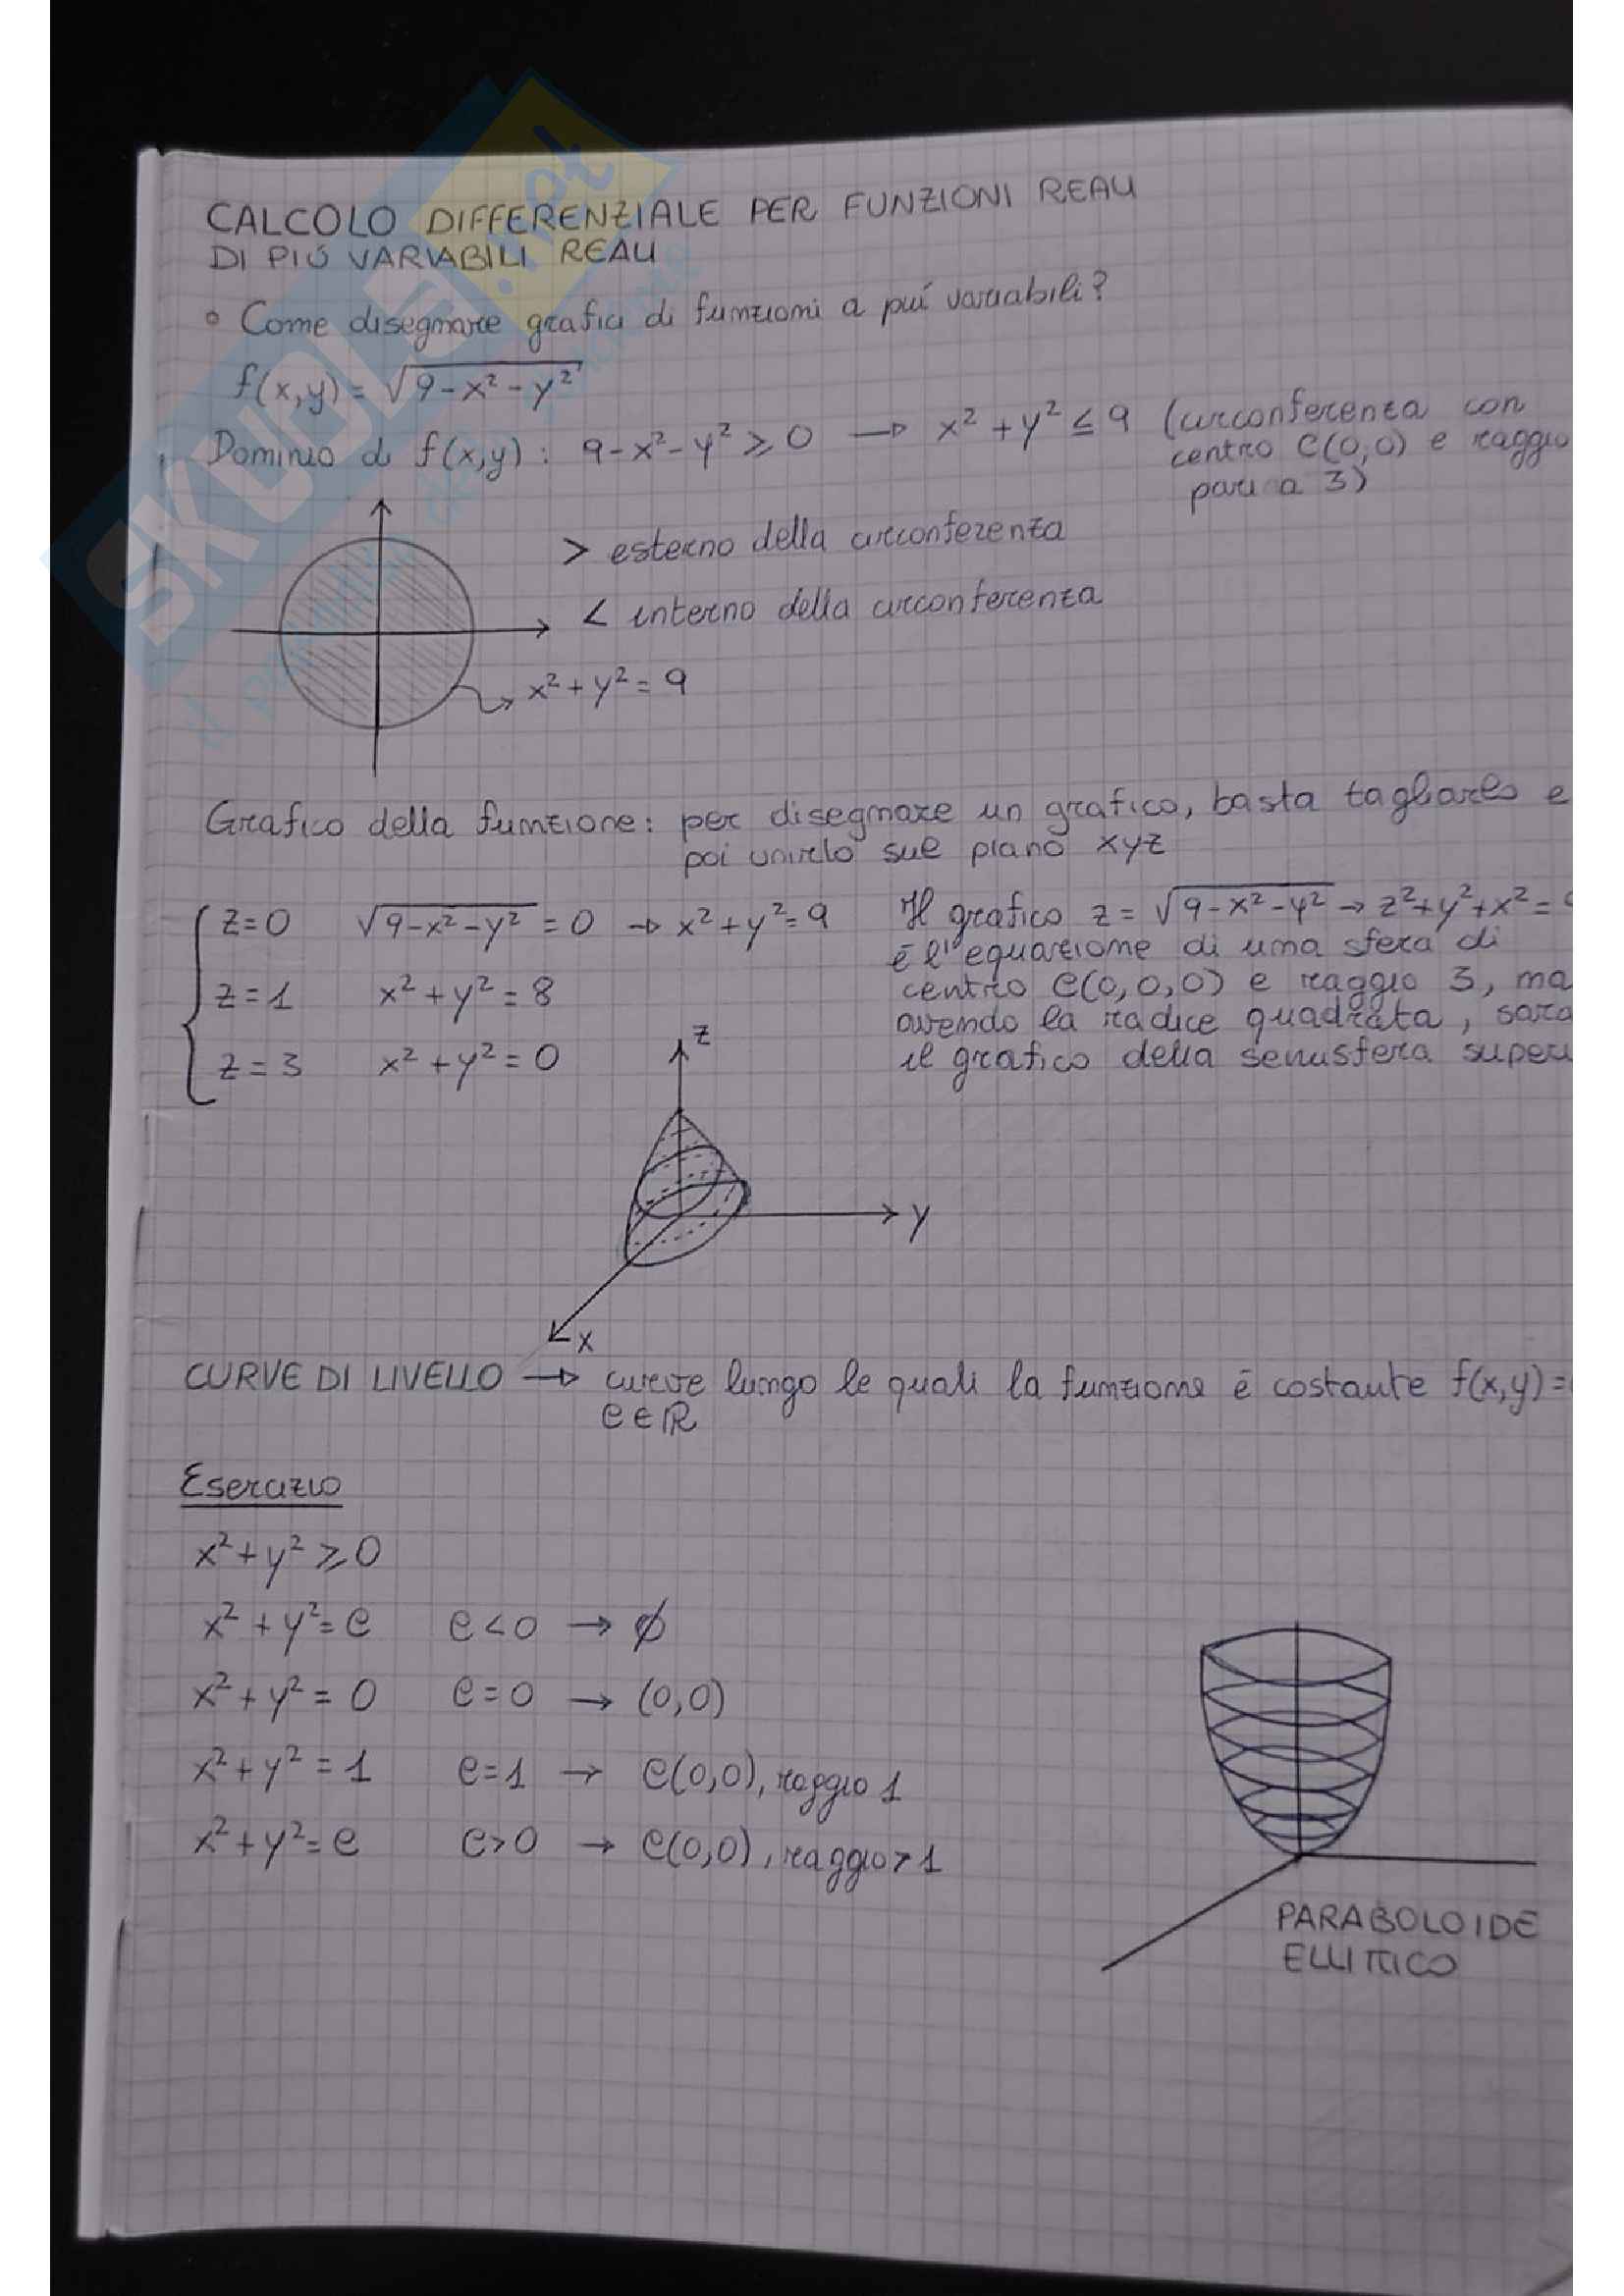 CALCOLO DIFFERENZIALE PER FUNZIONI REALI
DI PIÚ VARIABILI REALI
• Come disegnare grafici di funzioni a puí variabili?
f(x,y) = √(9-x²-y²)
Dominio di f(x,y) : 9-x²-y² ⩾ 0 → x²+y² ≤ 9 (circonferenza con
centro C(0,0) e raggio
pari a 3)
> esterno della circonferenza
< interno della circonferenza
x²+y² = 9
Grafico della funzione: per disegnare un grafico, basta tagliarlo e
poi unirlo sul piano xyz
z=0 √(9-x²-y²) = 0 → x²+y²=9
z=1 x²+y² = 8
z=3 x²+y² = 0
Il grafico z = √(9-x²-y²) → z²+y²+x² =
é l'equazione di una sfera di
centro C(0,0,0) e raggio 3, ma
avendo la radice quadrata, sara
il grafico della semisfera super
z
y
x
CURVE DI LIVELLO → curve lungo le quali la funzione é costante f(x,y) =
C∈ℝ
Esercizio
x²+y² ⩾ 0
x²+y² = C C<0 → ∅
x²+y² = 0 C=0 → (0,0)
x²+y² = 1 C=1 → C(0,0), raggio 1
x²+y² = C C>0 → C(0,0), raggio > 1
PARABOLOIDE
ELLITTICO
SKUOLA.net